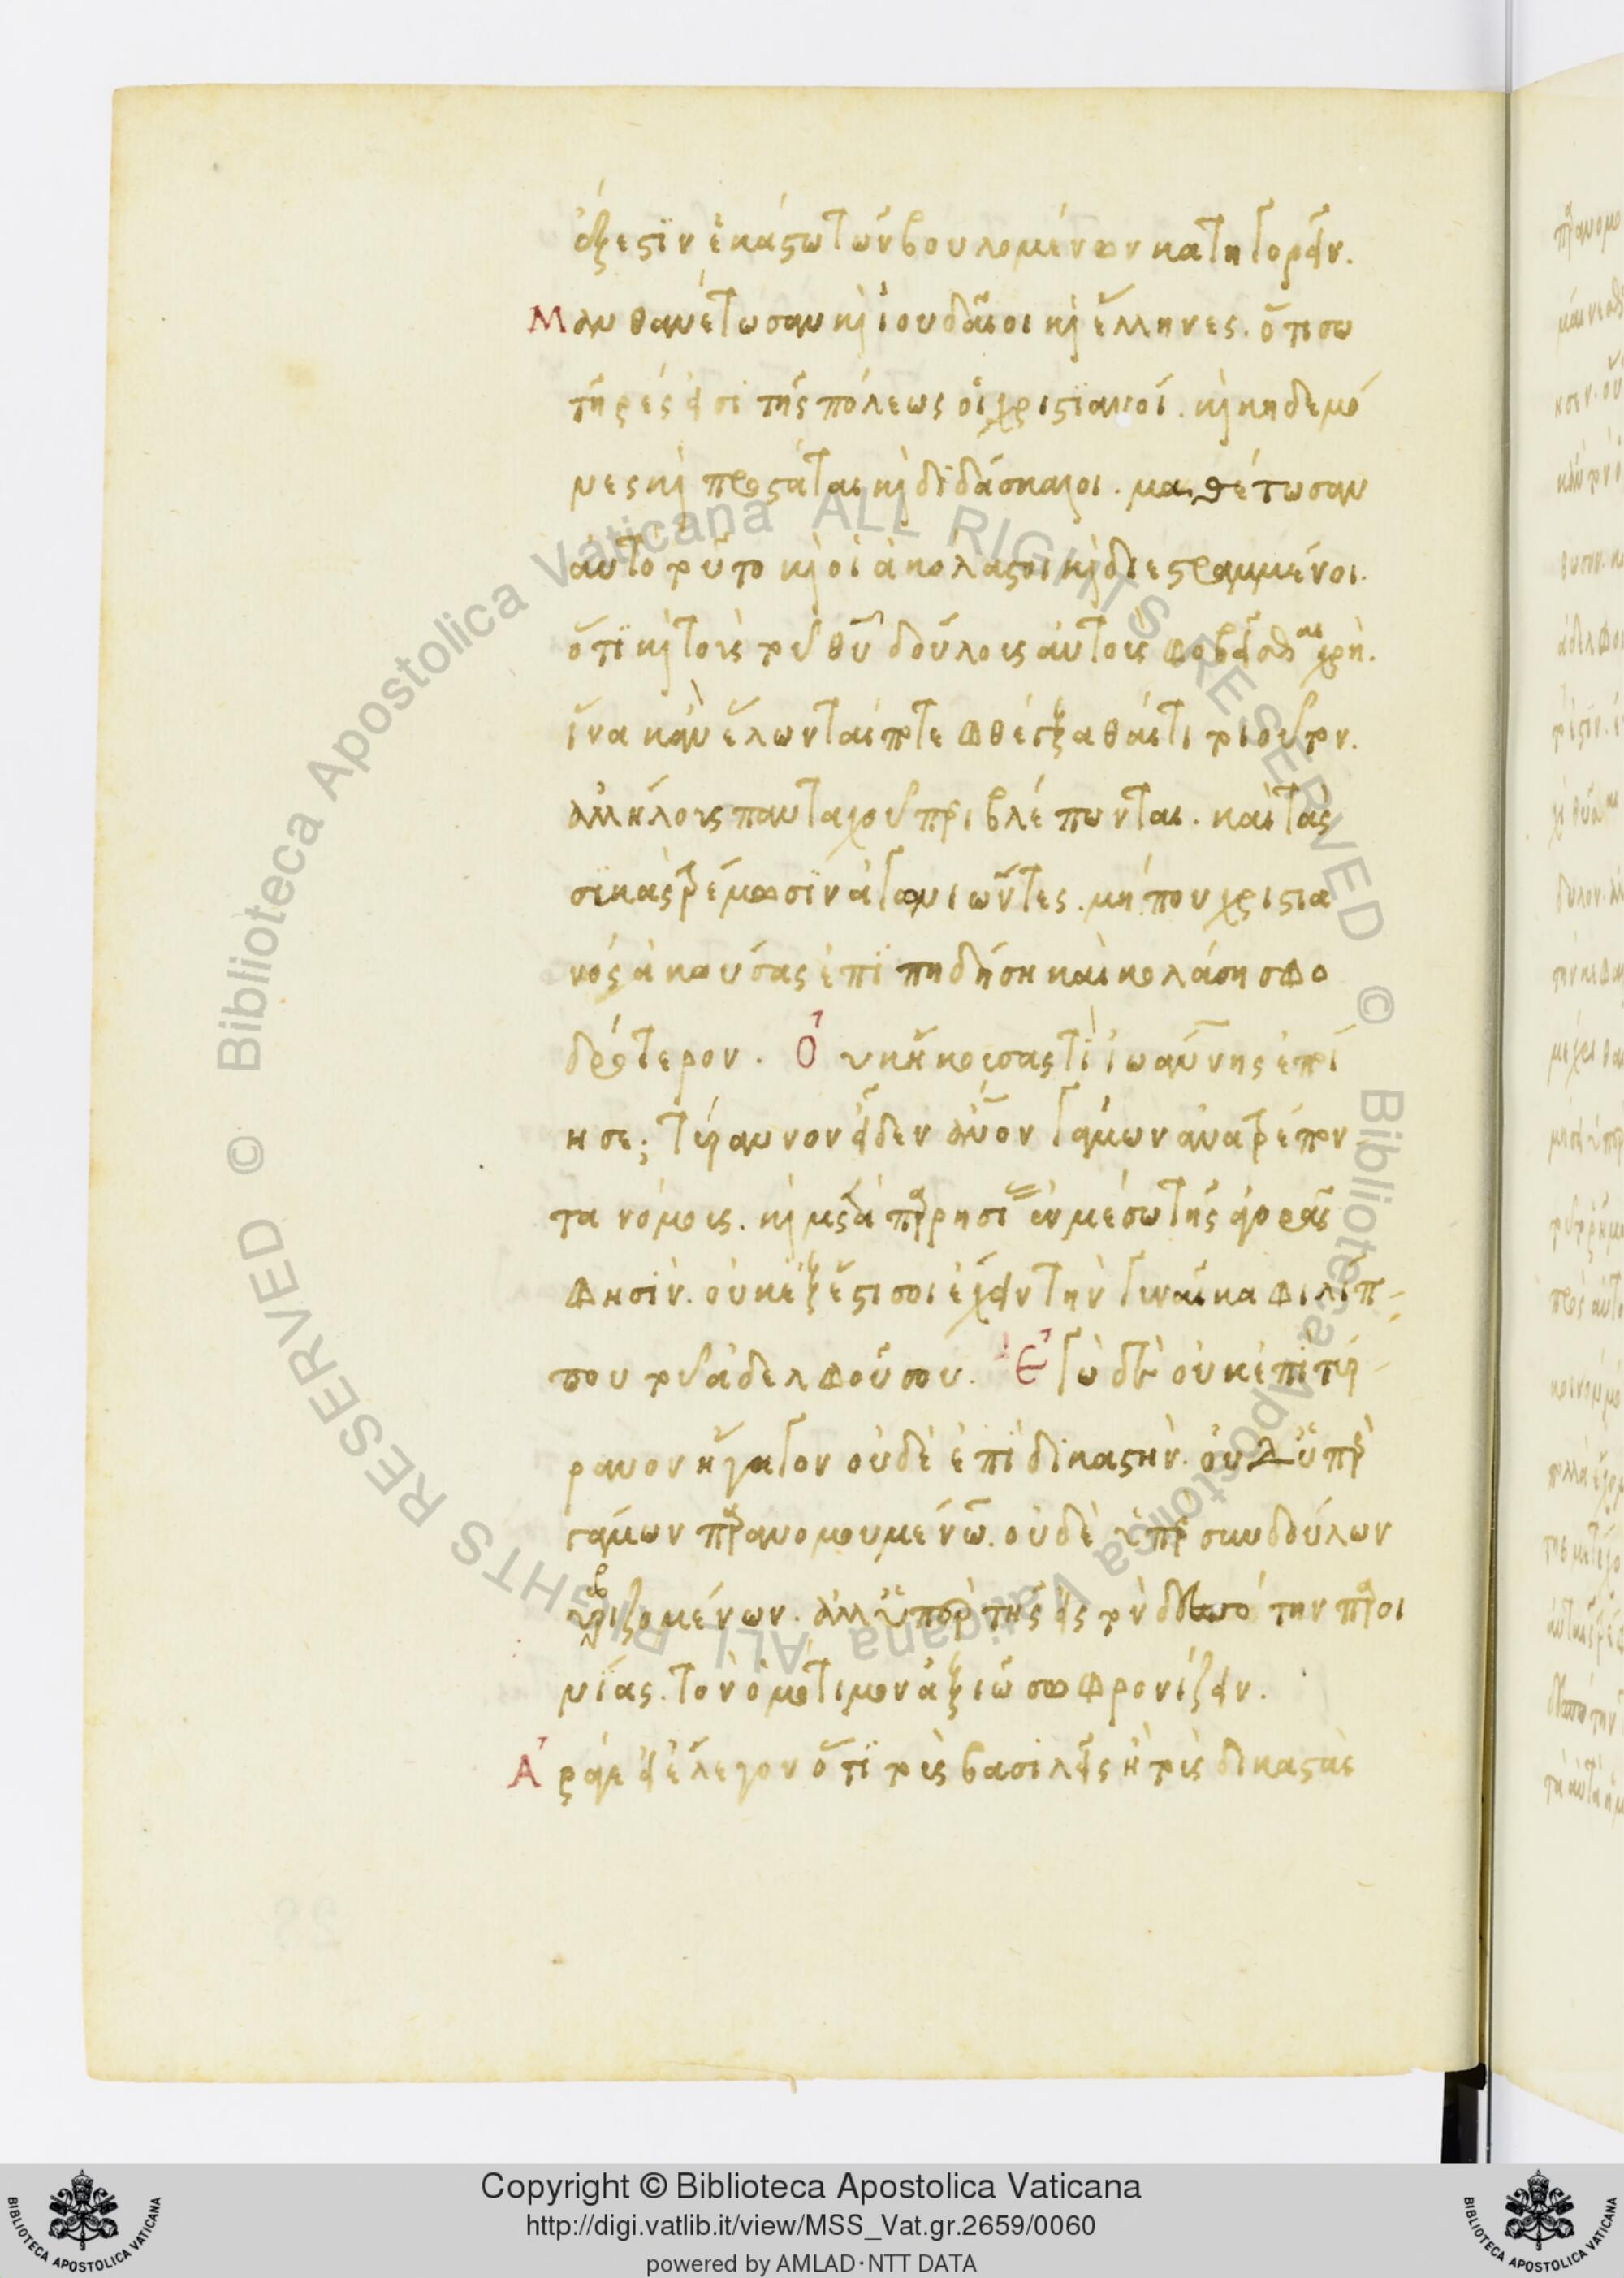 ἔξεστιν ἑκάστω τῶν βουλομένων κατηγορεῖν.
Μανθανέτωσαν καὶ ἰουδαῖοι καὶ ἕλληνες. ὅτι σω
τῆρές εἰσι τῆς πόλεως οἱ χριστιανοί. καὶ κηδεμό
νες καὶ προστάται καὶ διδάσκαλοι. μαθέτωσαν
αὐτὸ τοῦτο καὶ οἱ ἀκόλαστοι καὶ διεστραμμένοι.
ὅτι καὶ τοὺς τοῦ θυ δούλους αὐτοὺς φοβεῖσθαι χρὴ.
ἵνα κἂν ἕλωνταί ποτε φθέγξασθαί τι τοιοῦτον.
ἀλλήλους πανταχοῦ περιβλέπωνται. καὶ τὰς
σκιὰς τρέμωσιν ἀγωνιῶντες. μή που χριστια
νός ἀκούσας ἐπιπηδήση καὶ κολάση σφο
δρότερον. Οὐκ ἤκουσας τί ἰωάννης ἐποί
ησε; τύραννον εἶδεν ἄνον γάμων ἀνατρέπον
τα νόμους. καὶ μετὰ παρρησί ἐν μέσω τῆς ἀγορᾶς
φησίν. οὐκ ἔξεστί σοι ἔχειν τὴν γυναῖκα φιλίπ-
που τοῦ ἀδελφοῦ σου. Ἐγὼ δὲ οὐκ ἐπὶ τύ-
ραννον ἤγαγον οὐδὲ ἐπὶ δικαστήν. οὐδὲ ὑπὲρ
γάμων παρανομουμένων. οὐδὲ ὑπὲρ συνδούλων
ὑβριζομένων. ἀλλ' ὑπὲρ τῆς εἰς τὸν δεσπότην παροι
νίας. τὸν ὁμότιμον ἀξιῶ σωφρονίζειν.
Ἆρα εἰ ἔλεγον ὅτι τοὺς βασιλεῖς ἢ τοὺς δικαστὰς
Copyright © Biblioteca Apostolica Vaticana
http://digi.vatlib.it/view/MSS_Vat.gr.2659/0060
powered by AMLAD·NTT DATA
BIBLIOTECA APOSTOLICA VATICANA
BIBLIOTECA APOSTOLICA VATICANA
© Biblioteca Apostolica Vaticana ALL RIGHTS RESERVED © Biblioteca Apostolica Vaticana ALL RIGHTS RESERVED